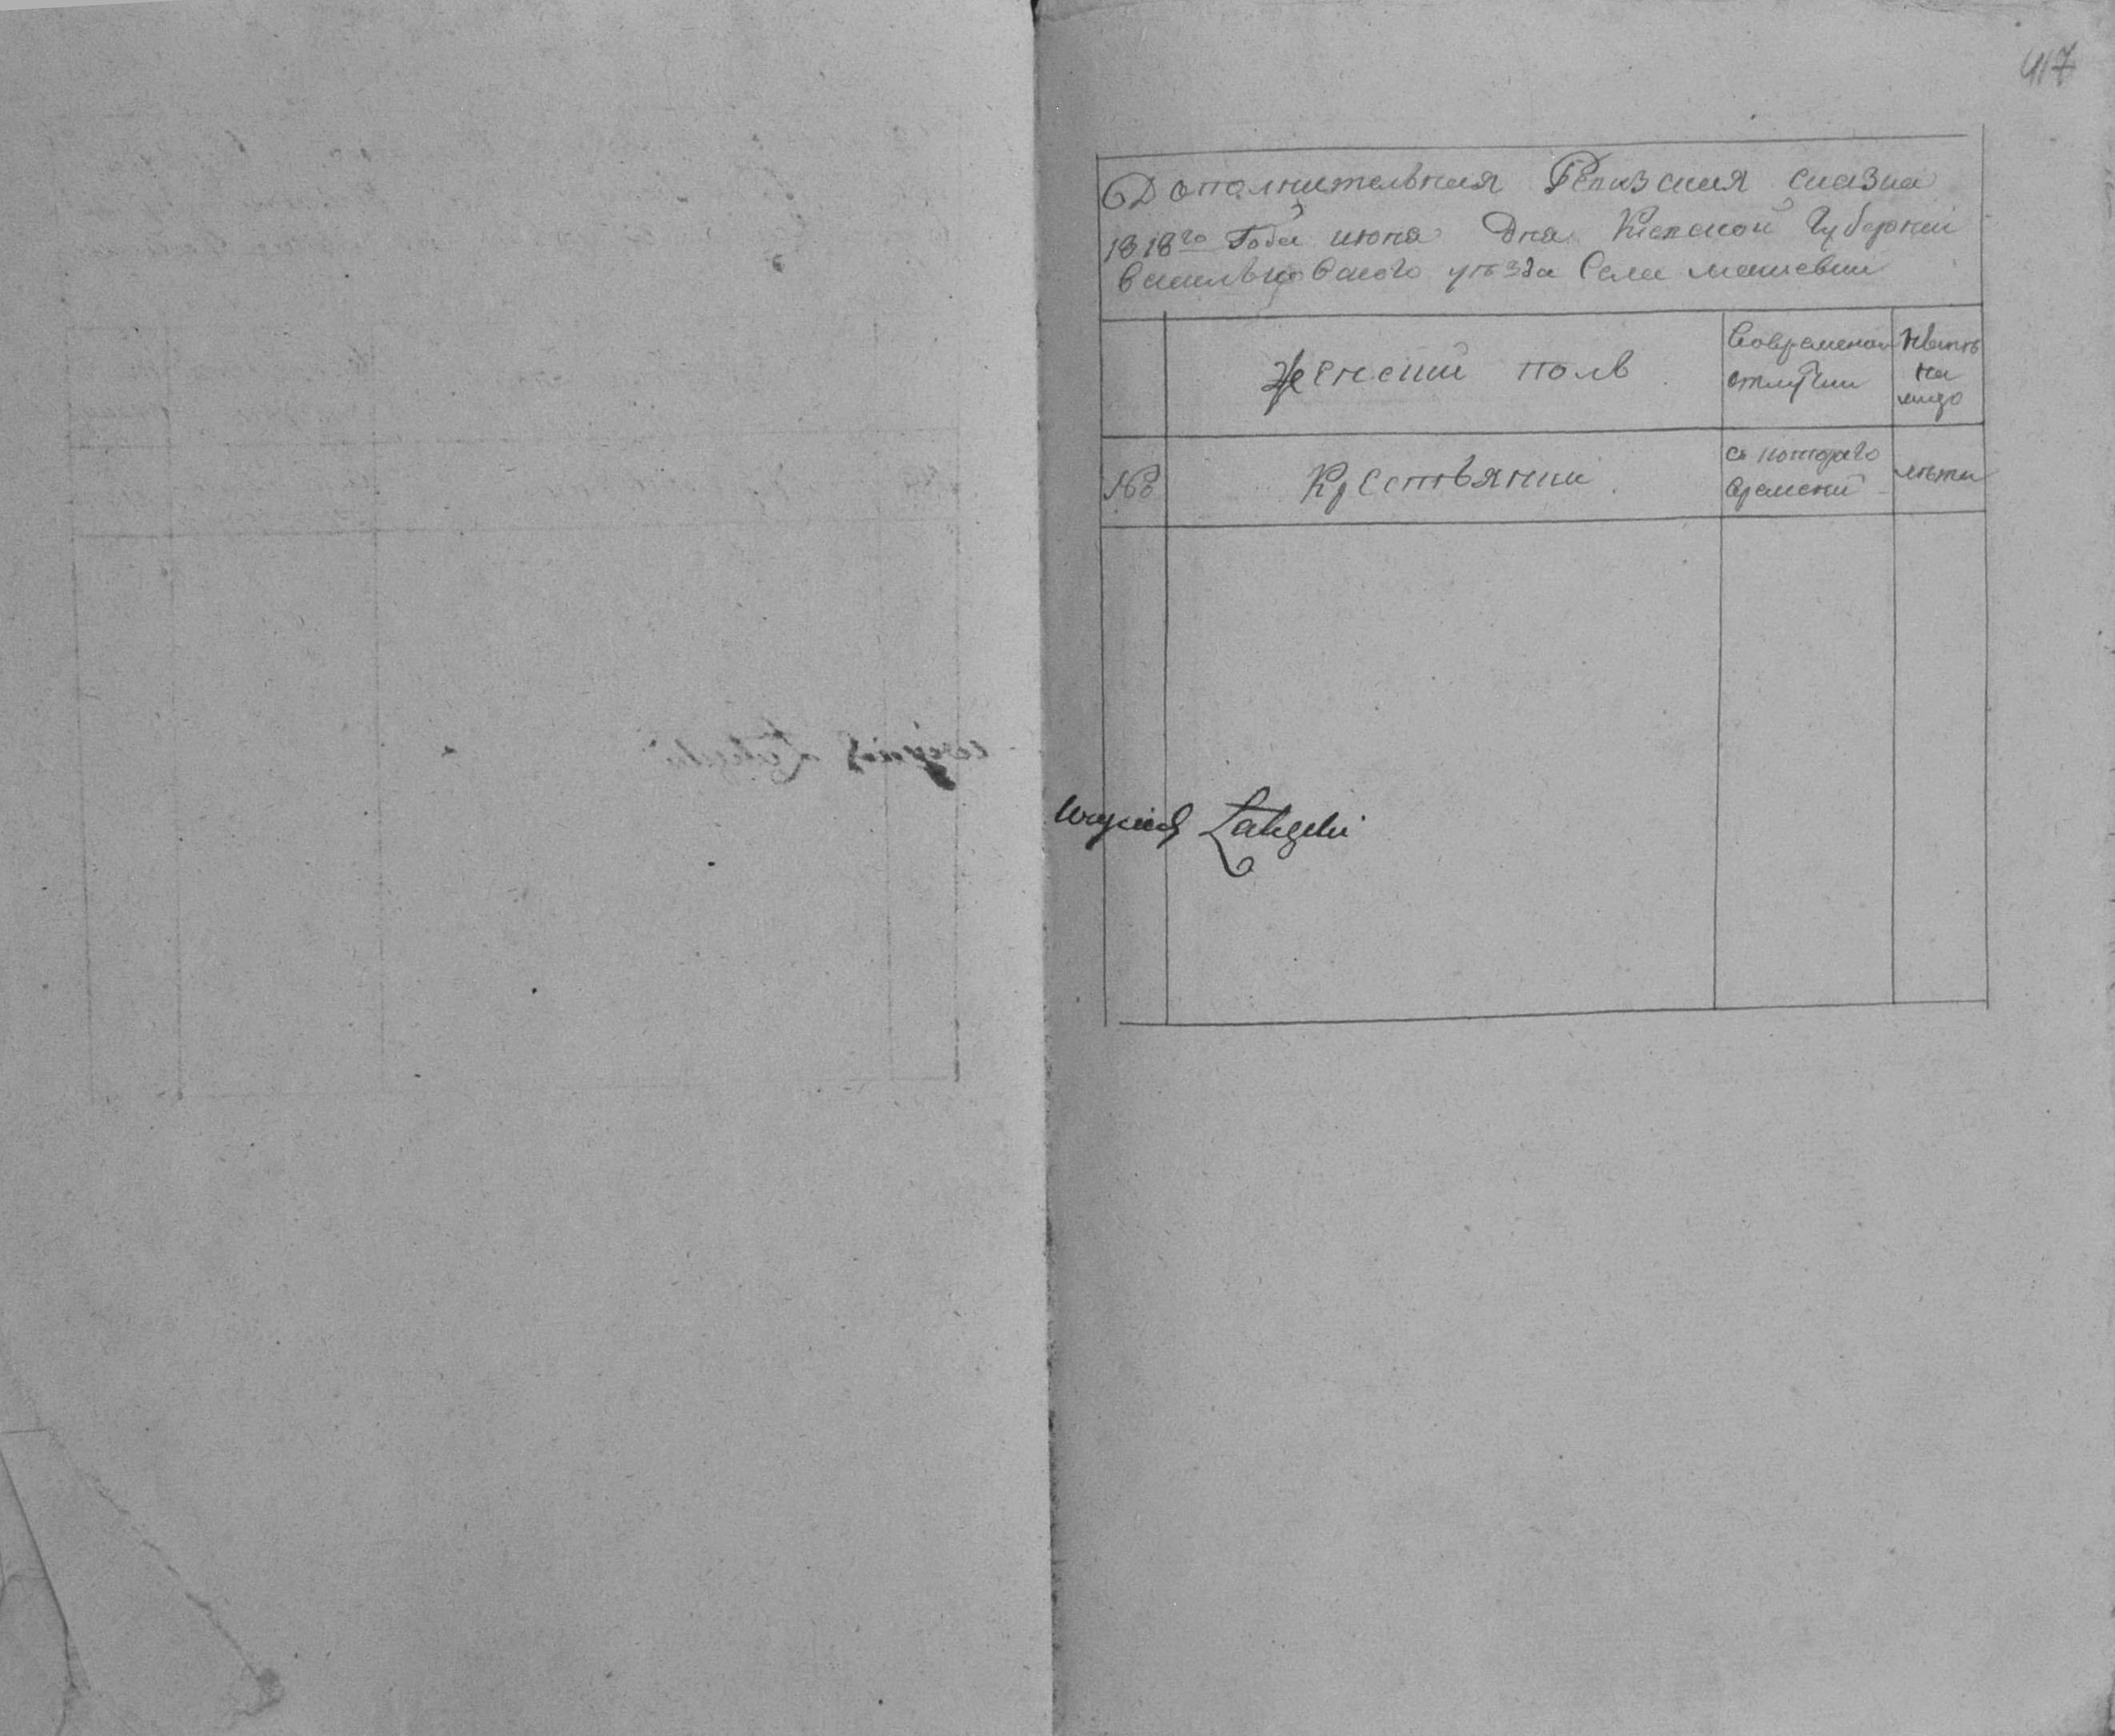 417
Дополнительная Ревизская сказка
1818го Года июня Дня Киевской Губернии
Васильковского уѣзда Села
женский полъ
Во временной
отлучки
Нынѣ
на
лицо
№
Крестьянки
съ котораго
времени
лѣта